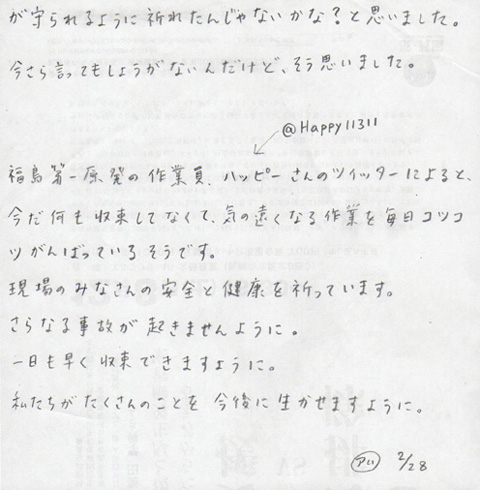 が守られるように祈れたんじゃないかな?と思いました。
今さら言ってもしょうがないんだけど、そう思いました。
@Happy11311
福島第一原発の作業員、ハッピーさんのツイッターによると、
今だ何も収束してなくて、気の遠くなる作業を毎日コツコ
ツがんばっているそうです。
現場のみなさんの安全と健康を祈っています。
さらなる事故が起きませんように。
一日も早く収束できますように。
私たちがたくさんのことを今後に生かせますように。
2/28